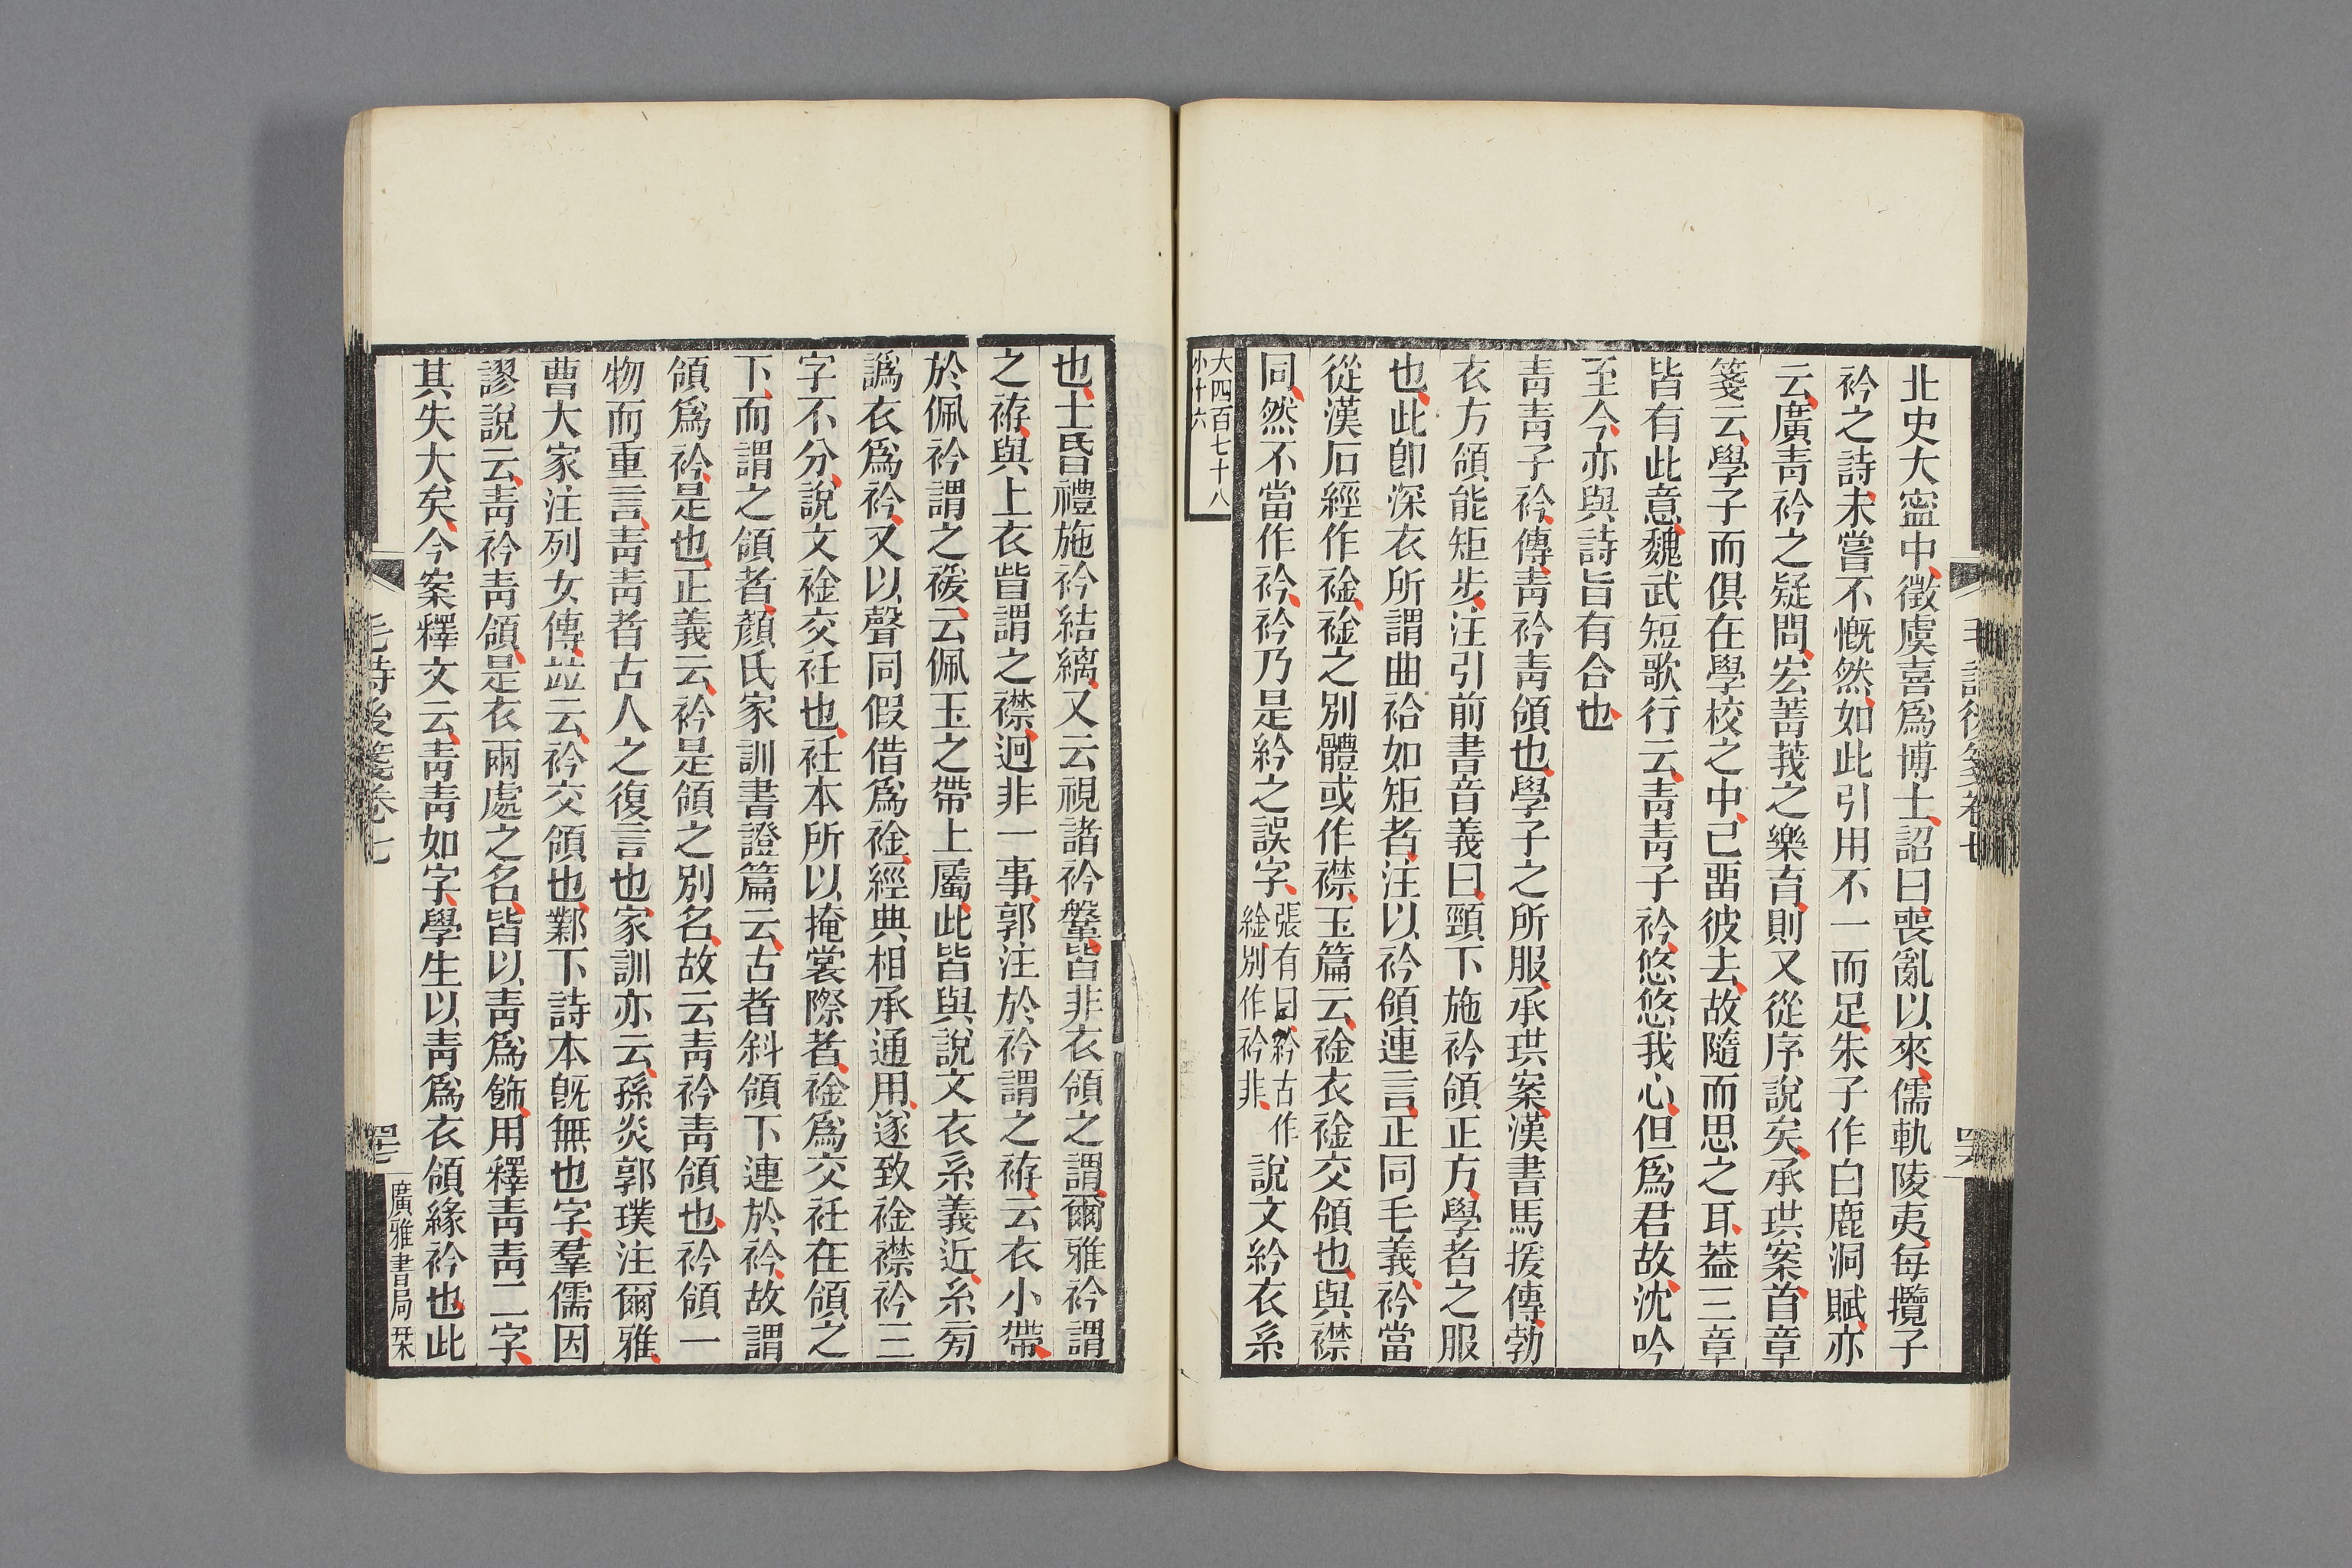 毛詩後箋卷七
北史大寍中徵虞喜爲博士詔曰喪亂以來儒軌陵夷每攬子
衿之詩未嘗不慨然如此引用不一而足朱子作白鹿洞賦亦
云廣青衿之疑問宏菁莪之樂育則又從序說矣承珙案首章
箋云學子而俱在學校之中己畱彼去故隨而思之耳葢三章
皆有此意魏武短歌行云青青子衿悠悠我心但爲君故沈吟
至今亦與詩旨有合也
青青子衿傳青衿青領也學子之所服承珙案漢書馬援傳勃
衣方領能矩步注引前書音義曰頸下施衿領正方學者之服
也此卽深衣所謂曲袷如矩者注以衿領連言正同毛義衿當
從漢石經作䘳䘳之別體或作襟玉篇云䘳衣䘳交領也與襟
同然不當作衿衿乃是紟之誤字張有曰紟古作絵別作衿非說文紟衣系
大四百七十八
小十六
也士昏禮施衿結縭又云視諸衿鞶皆非衣領之謂爾雅衿謂
之袸與上衣眥謂之襟迥非一事郭注於衿謂之袸云衣小帶
於佩衿謂之褑云佩玉之帶上屬此皆與說文衣系義近系㫄
譌衣爲衿又以聲同假借爲䘳經典相承通用遂致䘳襟衿三
字不分說文䘳交衽也衽本所以掩裳際者䘳爲交衽在領之
下而謂之領者顏氏家訓書證篇云古者斜領下連於衿故謂
領爲衿是也正義云衿是領之別名故云青衿青領也衿領一
物而重言青青者古人之復言也家訓亦云孫炎郭璞注爾雅
曹大家注列女傳竝云衿交領也鄴下詩本旣無也字羣儒因
謬說云青衿青領是衣兩處之名皆以青爲飾用釋青青二字
其失大矣今案釋文云青青如字學生以青爲衣領緣衿也此
毛詩後箋卷七
廣雅書局栞